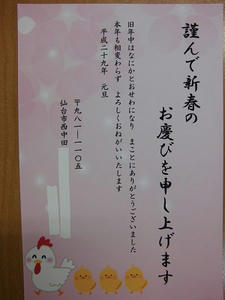 謹んで新春の
お慶びを申し上げます
旧年中はなにかとおせわになり　まことにありがとうございました
本年も相変わらず　よろしくおねがいいたします
平成二十九年　元旦
〒九八一―一一〇五
仙台市西中田